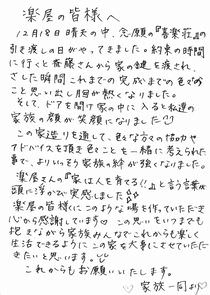 楽屋の皆様へ
12月18日晴天の中、念願の『喜楽荘』の
引き渡しの日がやってきました。約束の時間
に行くと斉藤さんから家の鍵を渡され、
さした瞬間これまでの完成までの色々の
こと思い出し目頭が熱くなりました。
そして、ドアを開け家の中に入ると私達の
家族の顔が笑顔になりました
この家造りを通して、色々な方々の協力や
アドバイスを頂き色々なことを一緒に考えられた
事で、よりいっそう家族の絆が強くなりました。
楽屋さんの『家は人を育てる!!』と言う言葉が
頭に浮かび実感しました
楽屋の皆様にこのような場を作っていただき
心から感謝しています この思いをいつまでも
抱きながら家族みんなでこれからも楽しく
生活できるようにこの家を大事にさせていただ
きたいと思います。
これからもお願いいたします。
家族一同より